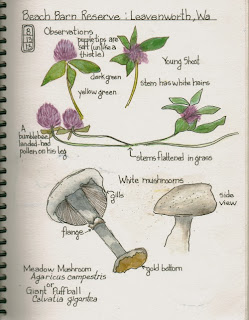 Beach Barn Reserve : Leavenworth, Wa
8
12
13
Observations
purple tips are
soft (unlike a
thistle)
Young Shoot
dark green
stem has white hairs
yellow green
A
bumblebee
landed-had
pollen on his leg
stems flattened in grass
White mushrooms
gills
side
view
flange
gold bottom
Meadow Mushroom
Agaricus campestris
or
Giant Puffball
Calvatia gigantea